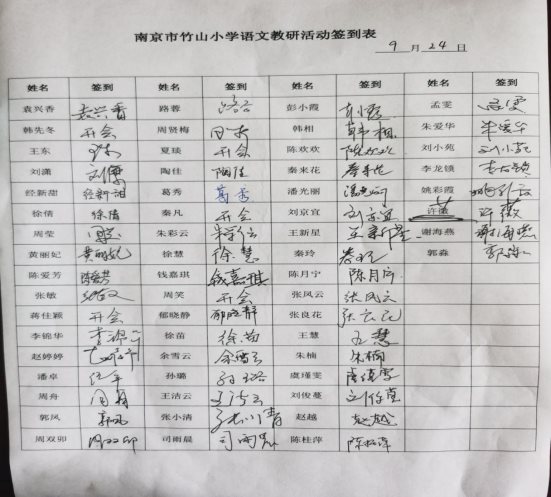 南京市竹山小学语文教研活动签到表
9月24日
姓名 签到 姓名 签到 姓名 签到 姓名 签到
袁兴香 袁兴香 路蓉 路蓉 彭小霞 彭小霞 孟雯 孟雯
韩先冬 开会 周贤梅 韩相 韩相 朱爱华 朱爱华
王东 夏琰 开会 陈欢欢 陈欢欢 刘小苑 刘小苑
刘潇 刘潇 陶佳 陶佳 秦来花 秦来花 李龙镇 李龙镇
经新甜 经新甜 葛秀 葛秀 潘光丽 姚彩霞
徐倩 徐倩 秦凡 开会 刘京宜 刘京宜 许薇 许薇
周莹 周莹 朱彩云 朱彩云 王新星 王新星 谢海燕 谢海燕
黄丽妃 黄丽妃 徐慧 徐慧 秦玲 秦玲 郭淼 郭淼
陈爱芳 陈爱芳 钱嘉琪 钱嘉琪 陈月宁 陈月宁
张敏 周笑 开会 张凤云 张凤云
蒋佳颖 开会 郁晓静 郁晓静 张良花 张良花
李锦华 李锦华 徐苗 徐苗 王慧 王慧
赵婷婷 余雪云 余雪云 朱楠 朱楠
潘卓 孙璐 孙璐 虞瑾雯 虞瑾雯
周舟 周舟 王洁云 王洁云 刘俊蔓
郭凤 郭凤 张小清 张小清 赵越 赵越
周双卯 周双卯 司雨晨 司雨晨 陈桂萍 陈桂萍